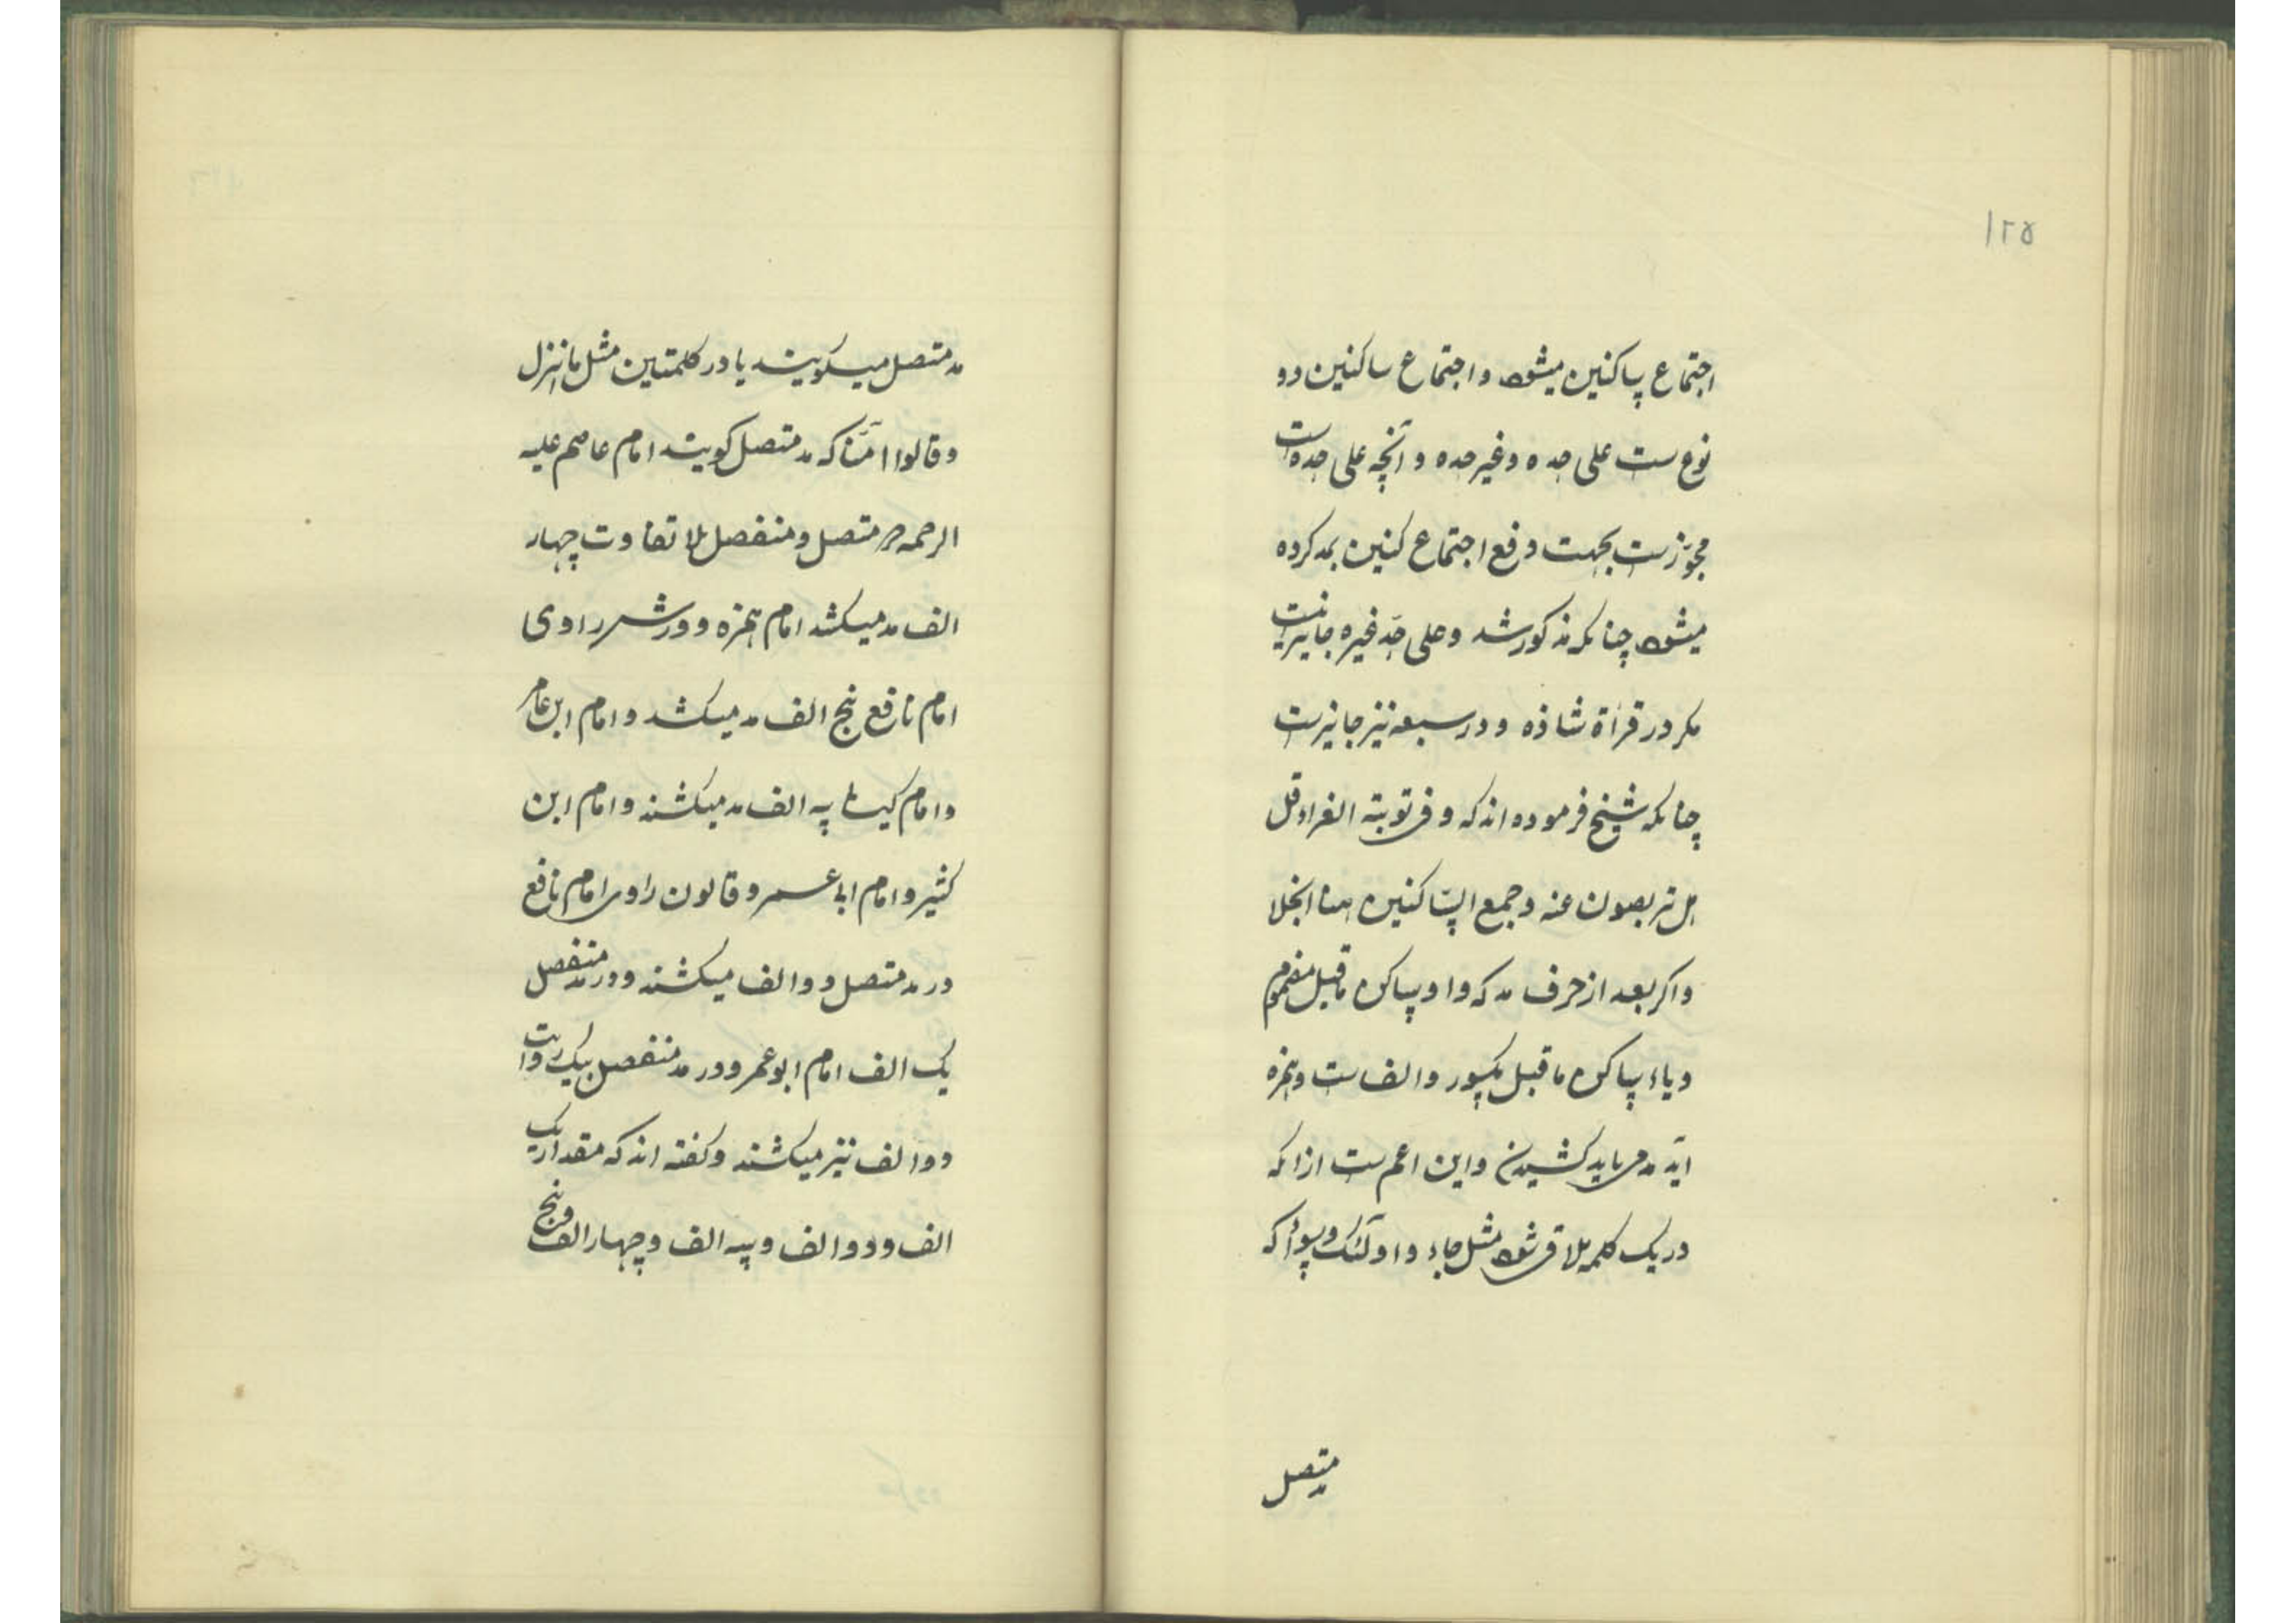 ۱۲۵
اجتماع ساکنین میشود و اجتماع ساکنین دو
نوع ست علی حده و غیر حده و آنچه علی حده است
مجوّز ست بجهت دفع اجتماع کنین بمد کرده
میشود چنانکه مذکور شد و علی حَد غیره جایز نیست
مکر در قرأة شاذه و در سبعه نیز جایز ست
چنانکه شیخ فرموده اند که و فی توبته الغراء قل
هل تربصون عنه و جمع الساکنین هنا انجلا
و اکر بعد از حرف مد که واو ساکن ماقبل مضموم
و یاء ساکن ماقبل مکسور و الف ست و همزه
آید مد می باید کشیدن و این اعم ست از انکه
در یک کلمه ملاقی شود مثل جاء و اولٓئک و سوأ که
مد متصل
مد متصل میکویند یا در کلمتین مثل ما انزل
و قالوا اٰمَنّا که مد متصل کویند امام عاصم علیه
الرحمه در متصل و منفصل بلا تفاوت چهار
الف مد میکشد امام همزه و ورش راوی
امام نافع پنج الف مد میکشد و امام ابن عامر
و امام کیسائی سه الف مد میکشند و امام ابن
کثیر و امام ابا عمرو و قالون راوی امام نافع
در مد متصل دو الف میکشند و در مد منفصل
یک الف امام ابو عمرو در مد منفصل بیک روایت
دو الف نیز میکشند و کفته اند که مقدار یک
الف و دو الف و سه الف و چهار الف و پنج